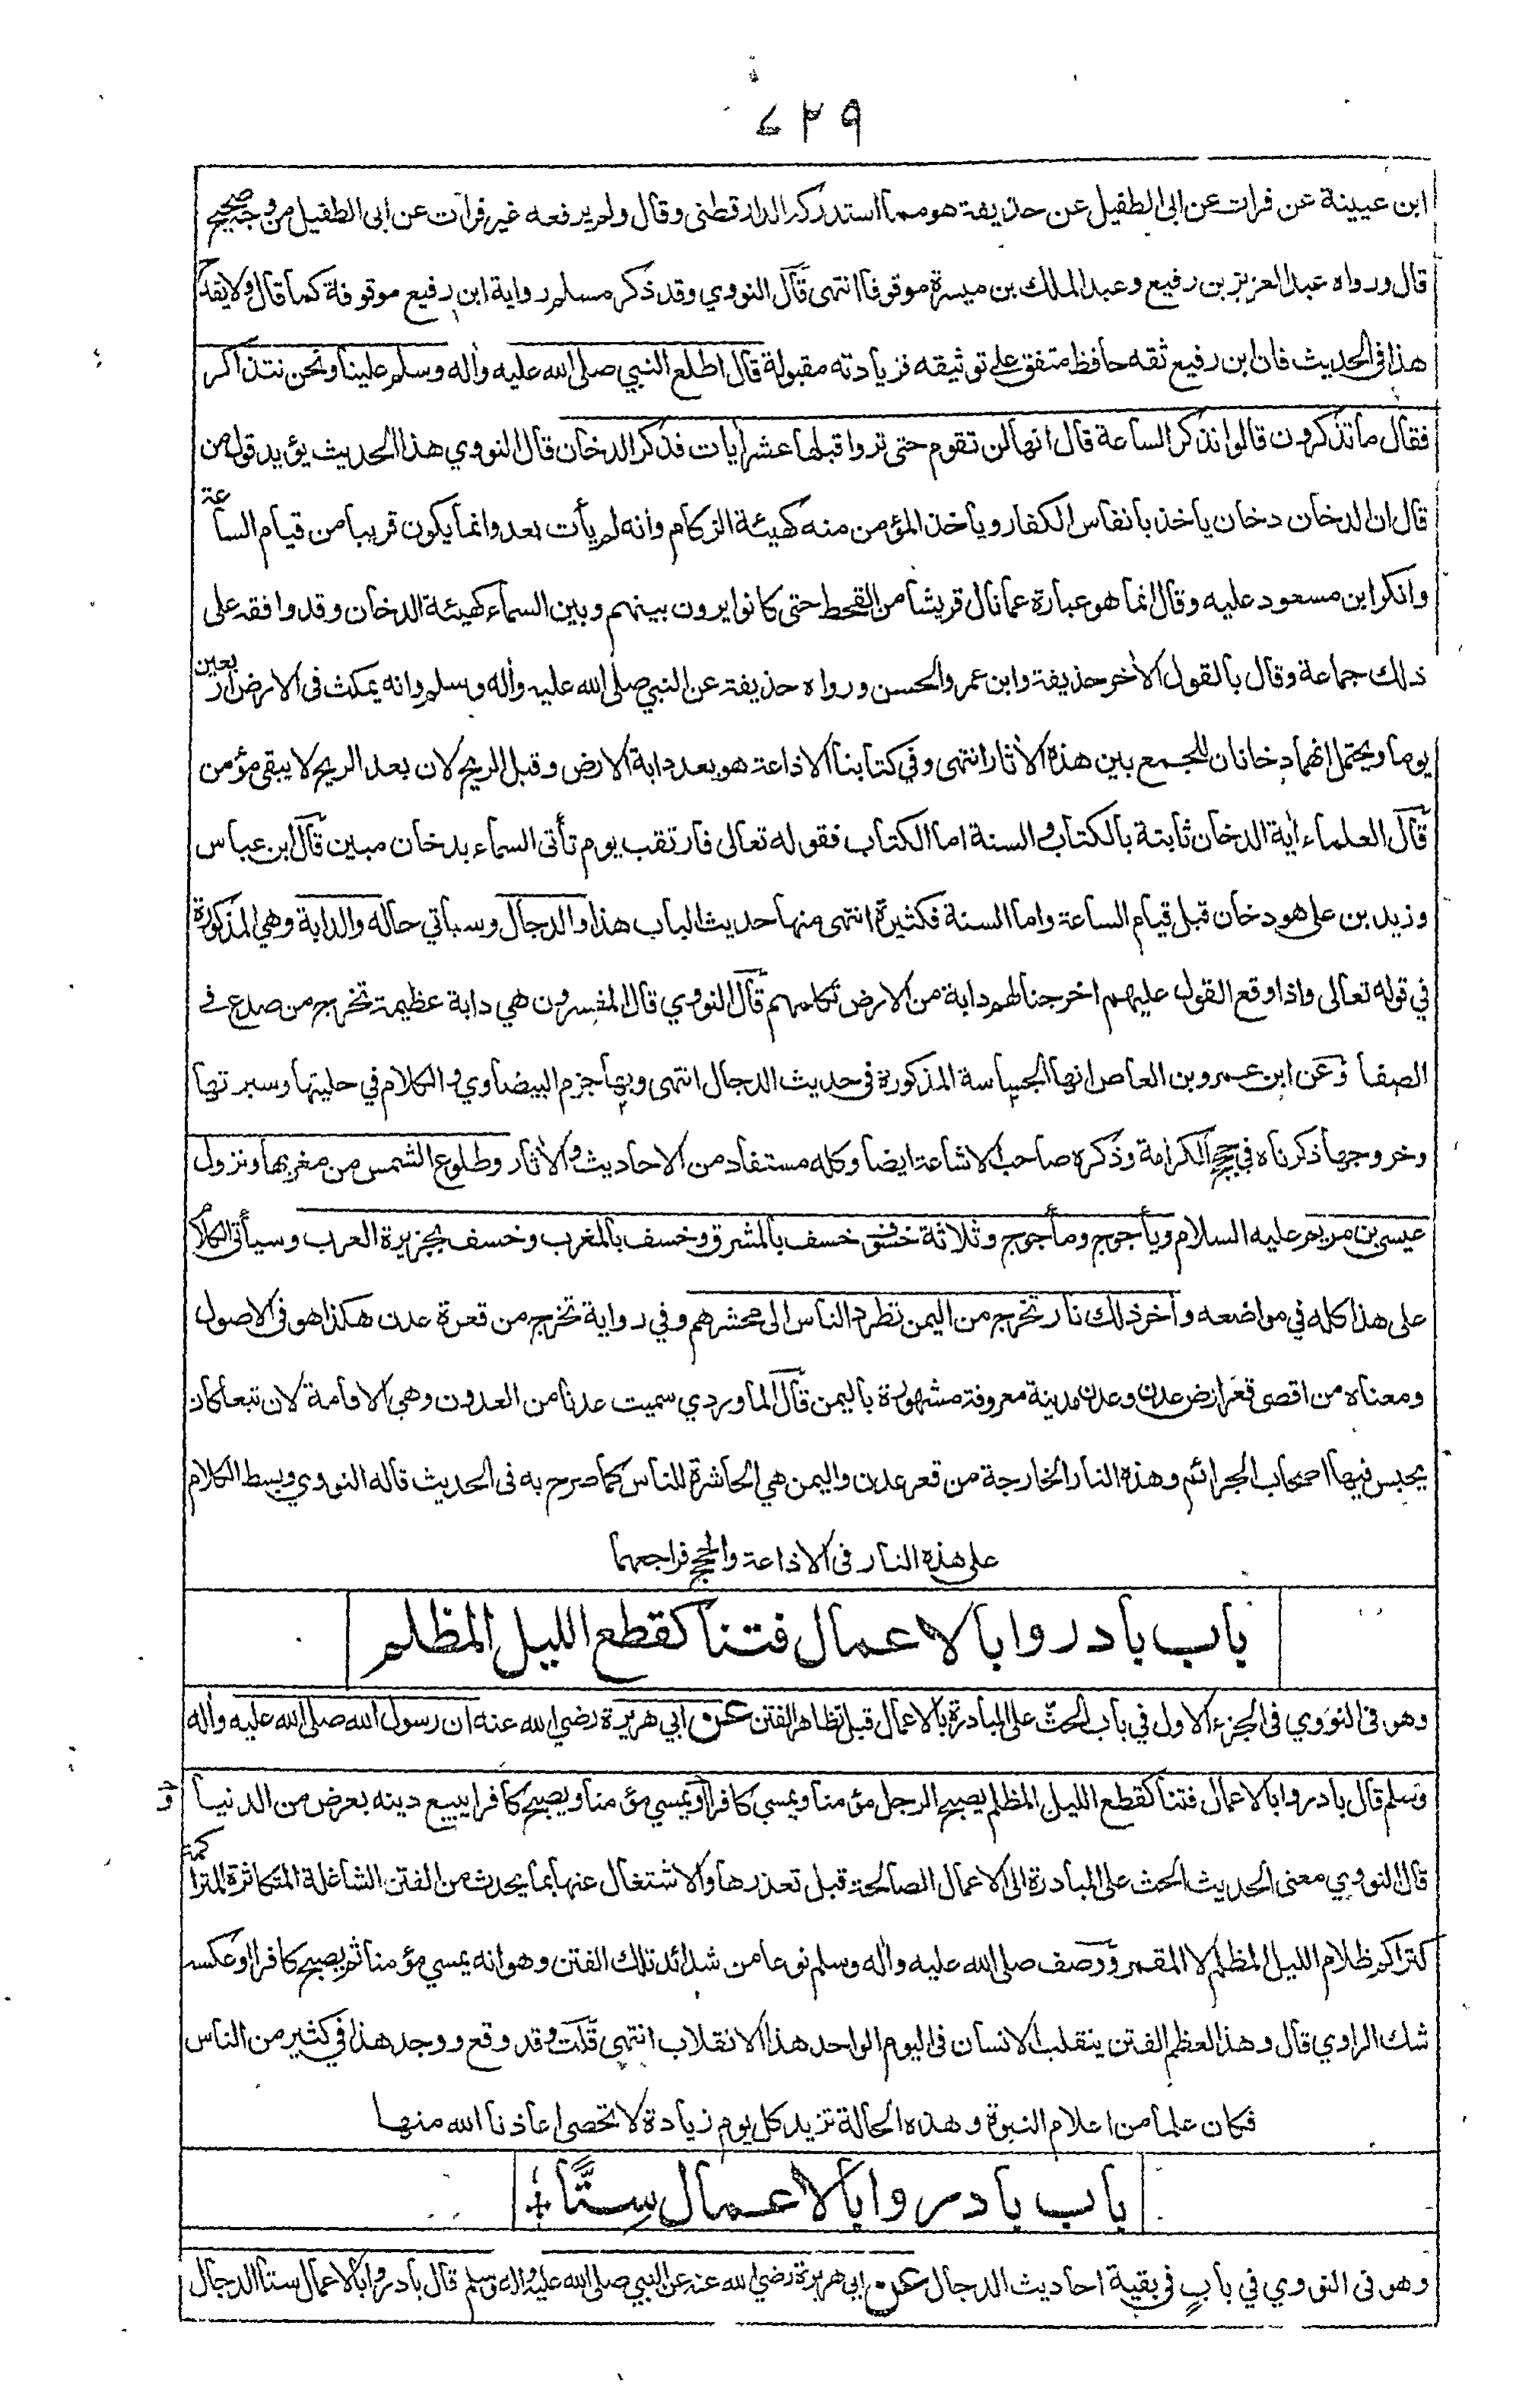 ٤٢٩
ابن عيينة عن فرات عن ابى الطفيل عن حذيفة هو مما استدركه الدارقطنى وقال ولم يرفعه غير فرات عن ابى الطفيل من وجه صحيح
قال ورواه عبد العزيز بن رفيع وعبد الملك بن ميسرة موقوفا انتهى قال النووي وقد ذكر مسلم رواية ابن رفيع موقوفة كما قال ولا يقدح
هذا فى الحديث فان ابن رفيع ثقه حافظ متفق على توثيقه فزيادته مقبولة قال اطلع النبي صلى الله عليه وأله وسلم علينا ونحن نتذاكر
فقال ما تذكرون قالوا نذكر الساعة قال انها لن تقوم حتى تروا قبلها عشر أيات فذكر الدخان قال النووي هذا الحديث يؤيد قول من
قال ان الدخان دخان ياخذ بانفاس الكفار وياخذ المؤمن منه كهيئة الزكام وانه لم يأت بعد وانما يكون قريبا من قيام الساعة
وانكر ابن مسعود عليه وقال انما هو عبارة عما نال قريشا من القحط حتى كانوا يرون بينهم وبين السماء كهيئة الدخان وقد وافقه على
ذلك جماعة وقال بالقول الأخر حذيفة وابن عمر والحسن ورواه حذيفة عن النبي صلى الله عليه وأله وسلم وانه يمكث فى الارض اربعين
يوما ويحتمل انهما دخانان للجمع بين هذه الأثار انتهى وفي كتابنا الاذاعة هو بعد دابة الارض وقبل الريح لان بعد الريح لا يبقى مؤمن
قال العلماء أية الدخان ثابتة بالكتاب والسنة اما الكتاب فقوله تعالى فارتقب يوم تأتى السماء بدخان مبين قال ابن عباس
وزيد بن على هو دخان قبل قيام الساعة واما السنة فكثيرة انتهى منها حديث الباب هذا والدجال وسيأتي حاله والدابة وهي المذكورة
في قوله تعالى واذا وقع القول عليهم اخرجنا لهم دابة من الارض تكلمهم قال النووي قال المفسرون هي دابة عظيمة تخرج من صدع في
الصفا وعن ابن عمرو بن العاص انها الجساسة المذكورة فى حديث الدجال انتهى وبها جزم البيضاوي والكلام في حليتها وسيرتها
وخروجها ذكرناه في حجج الكرامة وذكره صاحب الاشاعة ايضا وكله مستفاد من الاحاديث والأثار وطلوع الشمس من مغربها ونزول
عيسى بن مريم عليه السلام ويأجوج ومأجوج وثلاثة خسوف خسف بالمشرق وخسف بالمغرب وخسف بجزيرة العرب وسيأتى الكلام
على هذا كله في مواضعه وأخر ذلك نار تخرج من اليمن تطرد الناس الى محشرهم وفي رواية تخرج من قعرة عدن هكذا هو فى الاصول
ومعناه من اقصى قعر ارض عدن وعدن مدينة معروفة مشهورة باليمن قال الماوردي سميت عدنا من العدون وهي الاقامة لان تبعا كان
يحبس فيها اصحاب الجرائم وهذه النار الخارجة من قعر عدن واليمن هي الحاشرة للناس كما صرح به فى الحديث قاله النووي وبسط الكلام
على هذه النار فى الاذاعة والحجج فراجعهما
باب بادروا بالاعمال فتنا كقطع الليل المظلم
وهو فى النووي فى الجزء الاول في باب الحث على المبادرة بالاعمال قبل تظاهر الفتن عن ابي هريرة رضي الله عنه ان رسول الله صلى الله عليه وأله
وسلم قال بادروا بالاعمال فتنا كقطع الليل المظلم يصبح الرجل مؤمنا ويمسي كافرا او يمسي مؤمنا ويصبح كافرا يبيع دينه بعرض من الدنيا
قال النووي معنى الحديث الحث على المبادرة الى الاعمال الصالحة قبل تعذرها والاشتغال عنها بما يحدث من الفتن الشاغلة المتكاثرة المتراكمة
كتراكم ظلام الليل المظلم لا المقمر ووصف صلى الله عليه وأله وسلم نوعا من شدائد تلك الفتن وهو انه يمسي مؤمنا ثم يصبح كافرا او عكسه
شك الراوي قال وهذا لعظم الفتن ينقلب الانسان فى اليوم الواحد هذا الانقلاب انتهى قلت وقد وقع ووجد هذا في كثير من الناس
فكان علما من اعلام النبوة وهذه الحالة تزيد كل يوم زيادة لا تحصى اعاذنا الله منها
باب بادروا بالاعمال سِتًّا
وهو فى النووي في باب في بقية احاديث الدجال عن ابي هريرة رضي الله عنه عن النبي صلى الله عليه وأله وسلم قال بادروا بالاعمال ستا الدجال